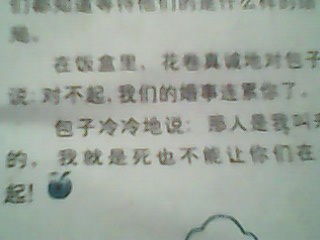 们都知道等待他们的是什么样的
是。
在饭盒里，花卷真诚地对包子
说：对不起，我们的婚事连累你了。
包子冷冷地说：那人是我叫来
的，我就是死也不能让你们在一
起！